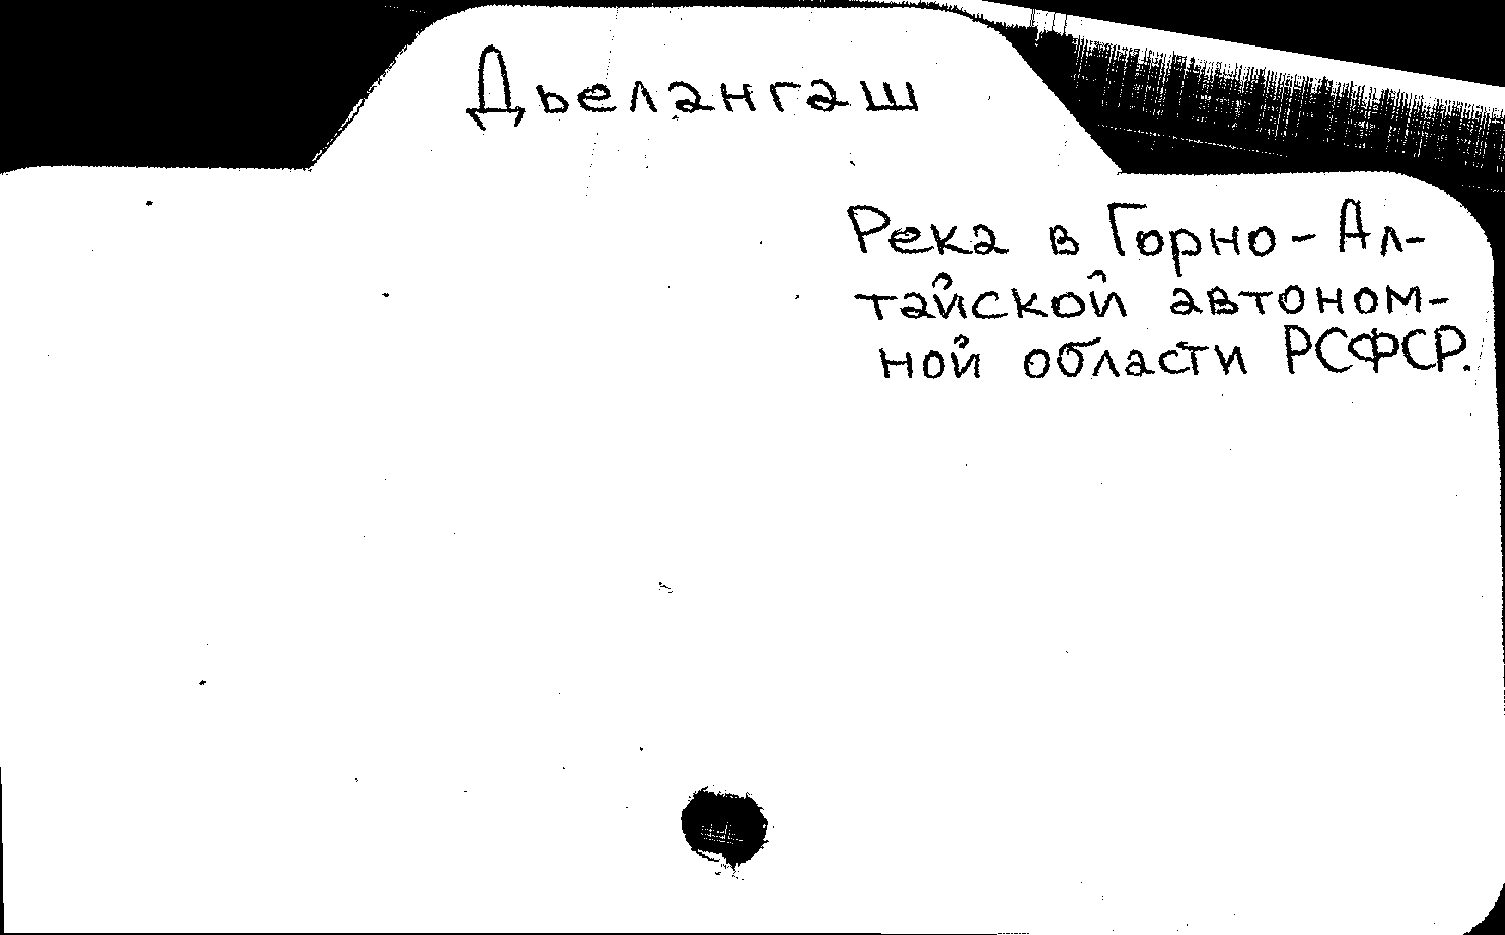 Дьелангаш
Река в Горно-Ал-
тайской автоном-
ной области РСФСР.